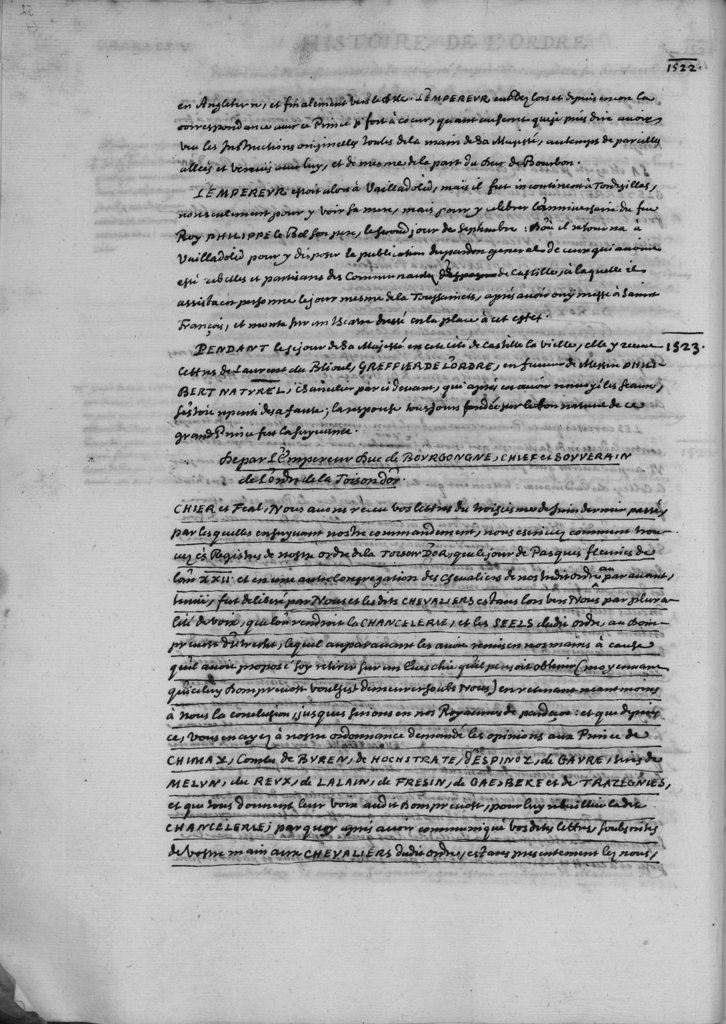 1522.
en Angleterre, et finalement vers le Sr. L'EMPEREVR eut dez lors et depuis encor la
correspondance avec ce Prince fort à coeur, quant au secret que je puis dire avoir
veu les Instructions originelles toutes de la main de Sa Majesté, autemps de pareilles
allées et venues avec luy, et de mesme de la part du Duc de Bourbon.
L'EMPEREVR estoit alors à Vailladolid, mais il fut incontinent à Tordesillas,
non seulement pour y voir sa mere, mais pour y celebrer l'anniversaire du feu
Roy PHILIPPE le Bel son pere, le second jour de Septembre: D'où il retourna à
Vailladolid pour y disposer la publication du pardon general de ceux qui avoient
esté rebelles et partisans des Communautez de Castille, à laquelle il
assista en personne le jour mesme de la Toussaincts, apres avoir ouy messe à Sainct
François, et monta sur un dressé en la place à cet effet.
PENDANT le sejour de Sa Majesté en cete cité de Castille la vieille, elle y receut 1523.
lettres de Laurent du Blioul, GREFFIER DE L'ORDRE, en faveur de Messire PHILI-
BERT NATUREL, Chancelier par ci devant, qui apres en avoir renvoyé les seaux,
s'estoit repenti de sa faute; la response tousjours fondée sur le bon naturel de ce
grand Prince fut la suyvante.
De par L'Empereur Duc de BOVRGONGNE, CHIEF et SOVVERAIN
de L'ordre de la Toison d'or.
CHIER et Feal, Nous avons receu vos lettres du troisiesme de Juin dernier passé,
par lesquelles ensuyvant nostre commandement, nous escrivez comment trou-
vez és Registres de nostre ordre de la TOISON D'OR, que le jour de Pasques fleuries de
l'an XXII et en une autre Congregation des Chevaliers de nostredit ordre au par avant,
tenue, fut deliberé par Nous et lesdits CHEVALIERS estans lors vers Nous par plura-
lité de voix, que l'on rendroit la CHANCELERIE, et les SEELS dudit ordre, au dom-
prevost d'Utrecht, lequel auparavant les avoit remis en noz mains à cause
qu'il avoit proposé soy retirer sur un Evesché qu'il pensoit obtenir (moyennant
qu'iceluy Domprevost voulsist demeurer soubs Nous) en retenant neantmoins
à Nous la conclusion, jusques serions en nos Royaumes de pardeça: et que depuis
ce, vous en ayez à nostre ordonnance demandé les opinions aux Prince de
CHIMAY, Comtes de BVREN, de HOCHSTRATE, D'ESPINOY, de GAVRE, Srs de
MELVN, du REVX, de LALAIN, de FRESIN, de GAESBEKE et de TRAZEGNIES,
et que tous donnent leur voix audit Domprevost, pour luy rebailler ladite
CHANCELERIE; parquoy apres avoir communiqué vosdites lettres, soubscrites
de vostre main aux CHEVALIERS dudit ordre, estans presentement lez nous,